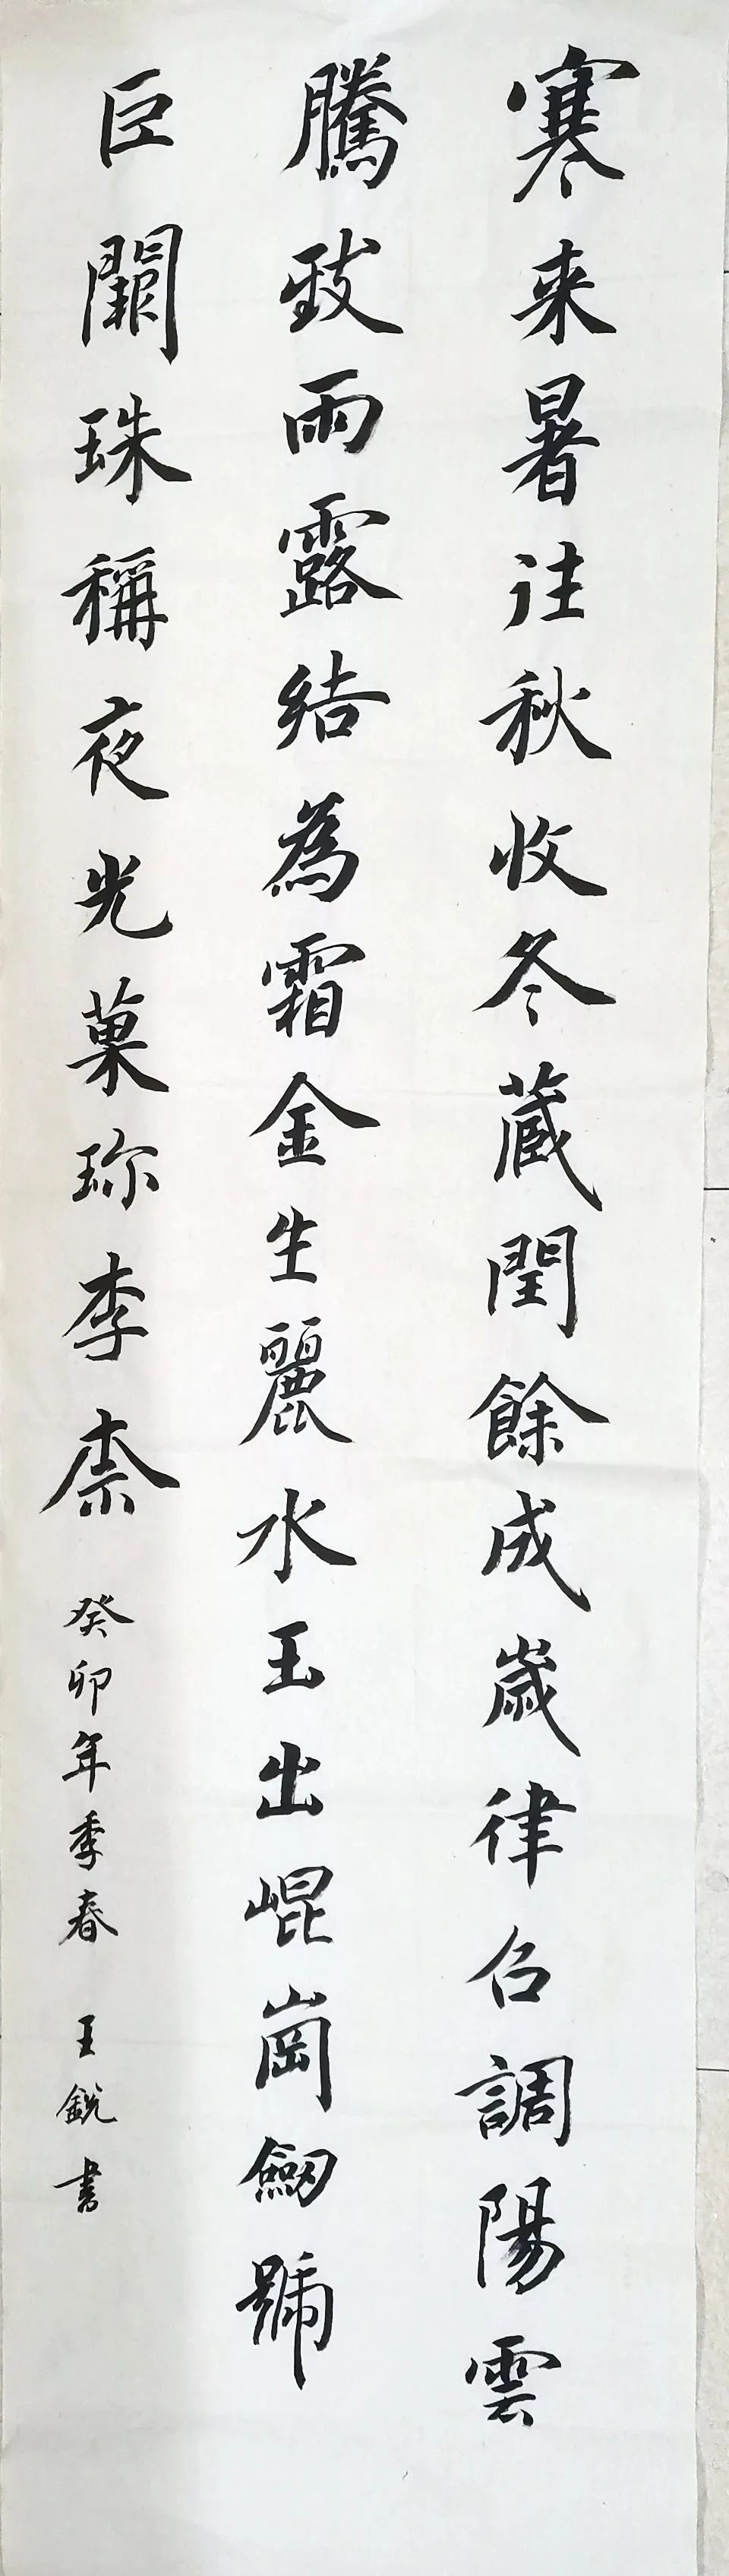 寒来暑往秋收冬蔵閏餘成歲律召調陽雲
騰致雨露結為霜金生麗水玉出崐崗劒號
巨闕珠稱夜光菓珎李柰癸卯年季春王銳書